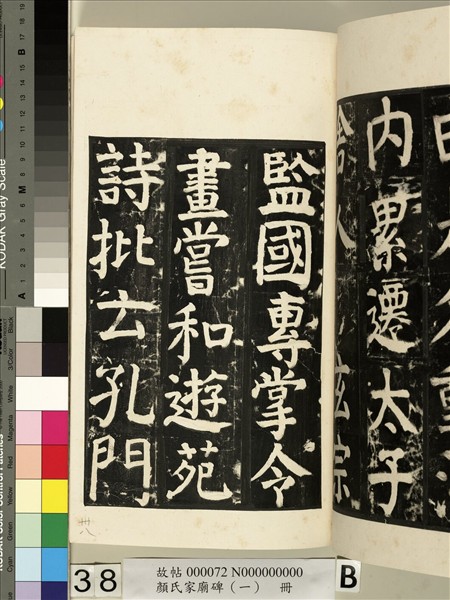 內累遷太子
監國專掌令
畫嘗和遊苑
詩批云孔門
卅八
38
故帖 000072 N000000000
顏氏家廟碑（一） 冊
B
KODAK Gray Scale
A 1 2 3 4 5 6 M 8 9 10 11 12 13 14 15 B 17 18 19
KODAK Color Control Patches
Blue Cyan Green Yellow Red Magenta White 3/Color Black